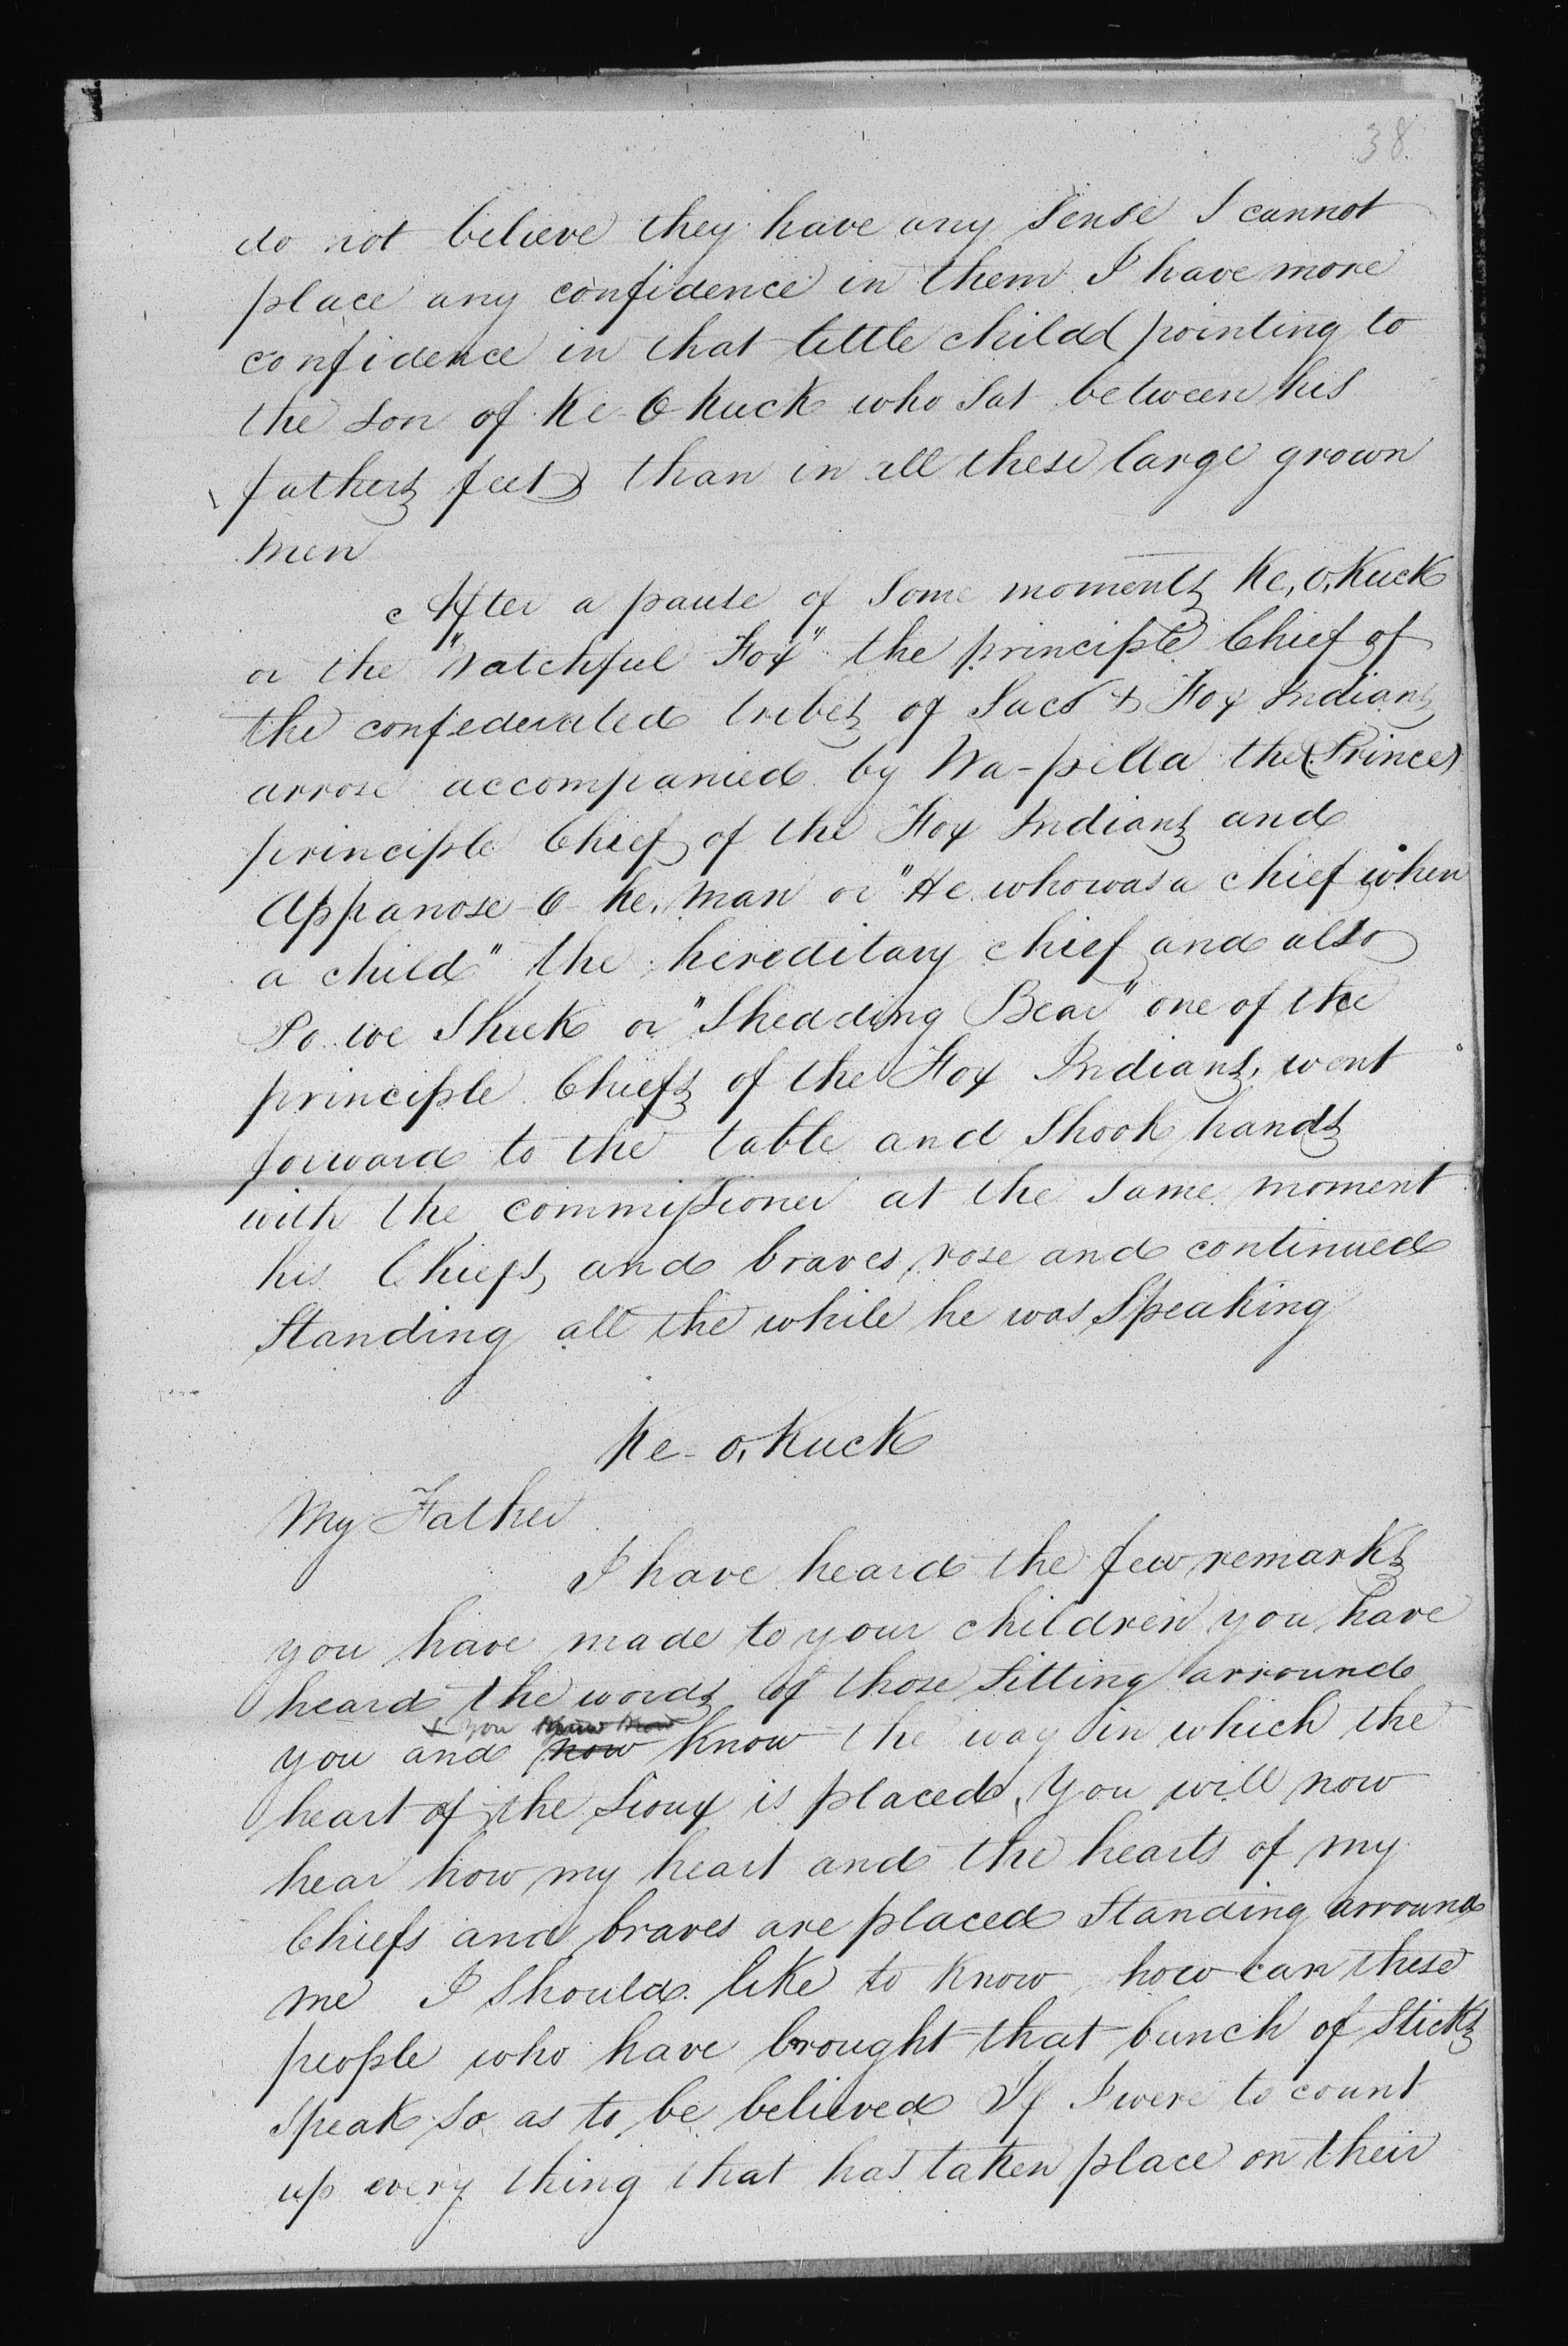 38.
do not believe they have any sense I cannot
place any confidence in them I have more
confidence in that little child (pointing to
the son of Ke-O-Kuck who sat between his
fathers feet) than in all these large grown
men
After a pause of some moments Ke,o,Kuck
or the "Watchful Fox" the principle Chief of
the confederated tribes of Sacs & Fox Indians
arrose accompanied by Wa-pella the (Prince)
principle Chief of the Fox Indians and
Appanose-O-ke,man or "He who was a chief when
a child" the hereditary chief and also
Po..we Shuk or "Shedding Bear" one of the
principle Chiefs of the Fox Indians, went
forward to the table and shook hands
with the commissioner at the same moment
his Chiefs and braves rose and continued
Standing all the while he was Speaking
Ke-o,Kuck
My Father
I have heard the few remarks
you have made to your children you have
heard the words of those sitting arround
& you
you and now know the way in which the
heart of the Sioux is placed, You will now
hear how my heart and the hearts of my
Chiefs and braves are placed standing arround
me I should like to know, how can these
people who have brought that bunch of sticks
speak so as to be believed If I were to count
up every thing that has taken place on their